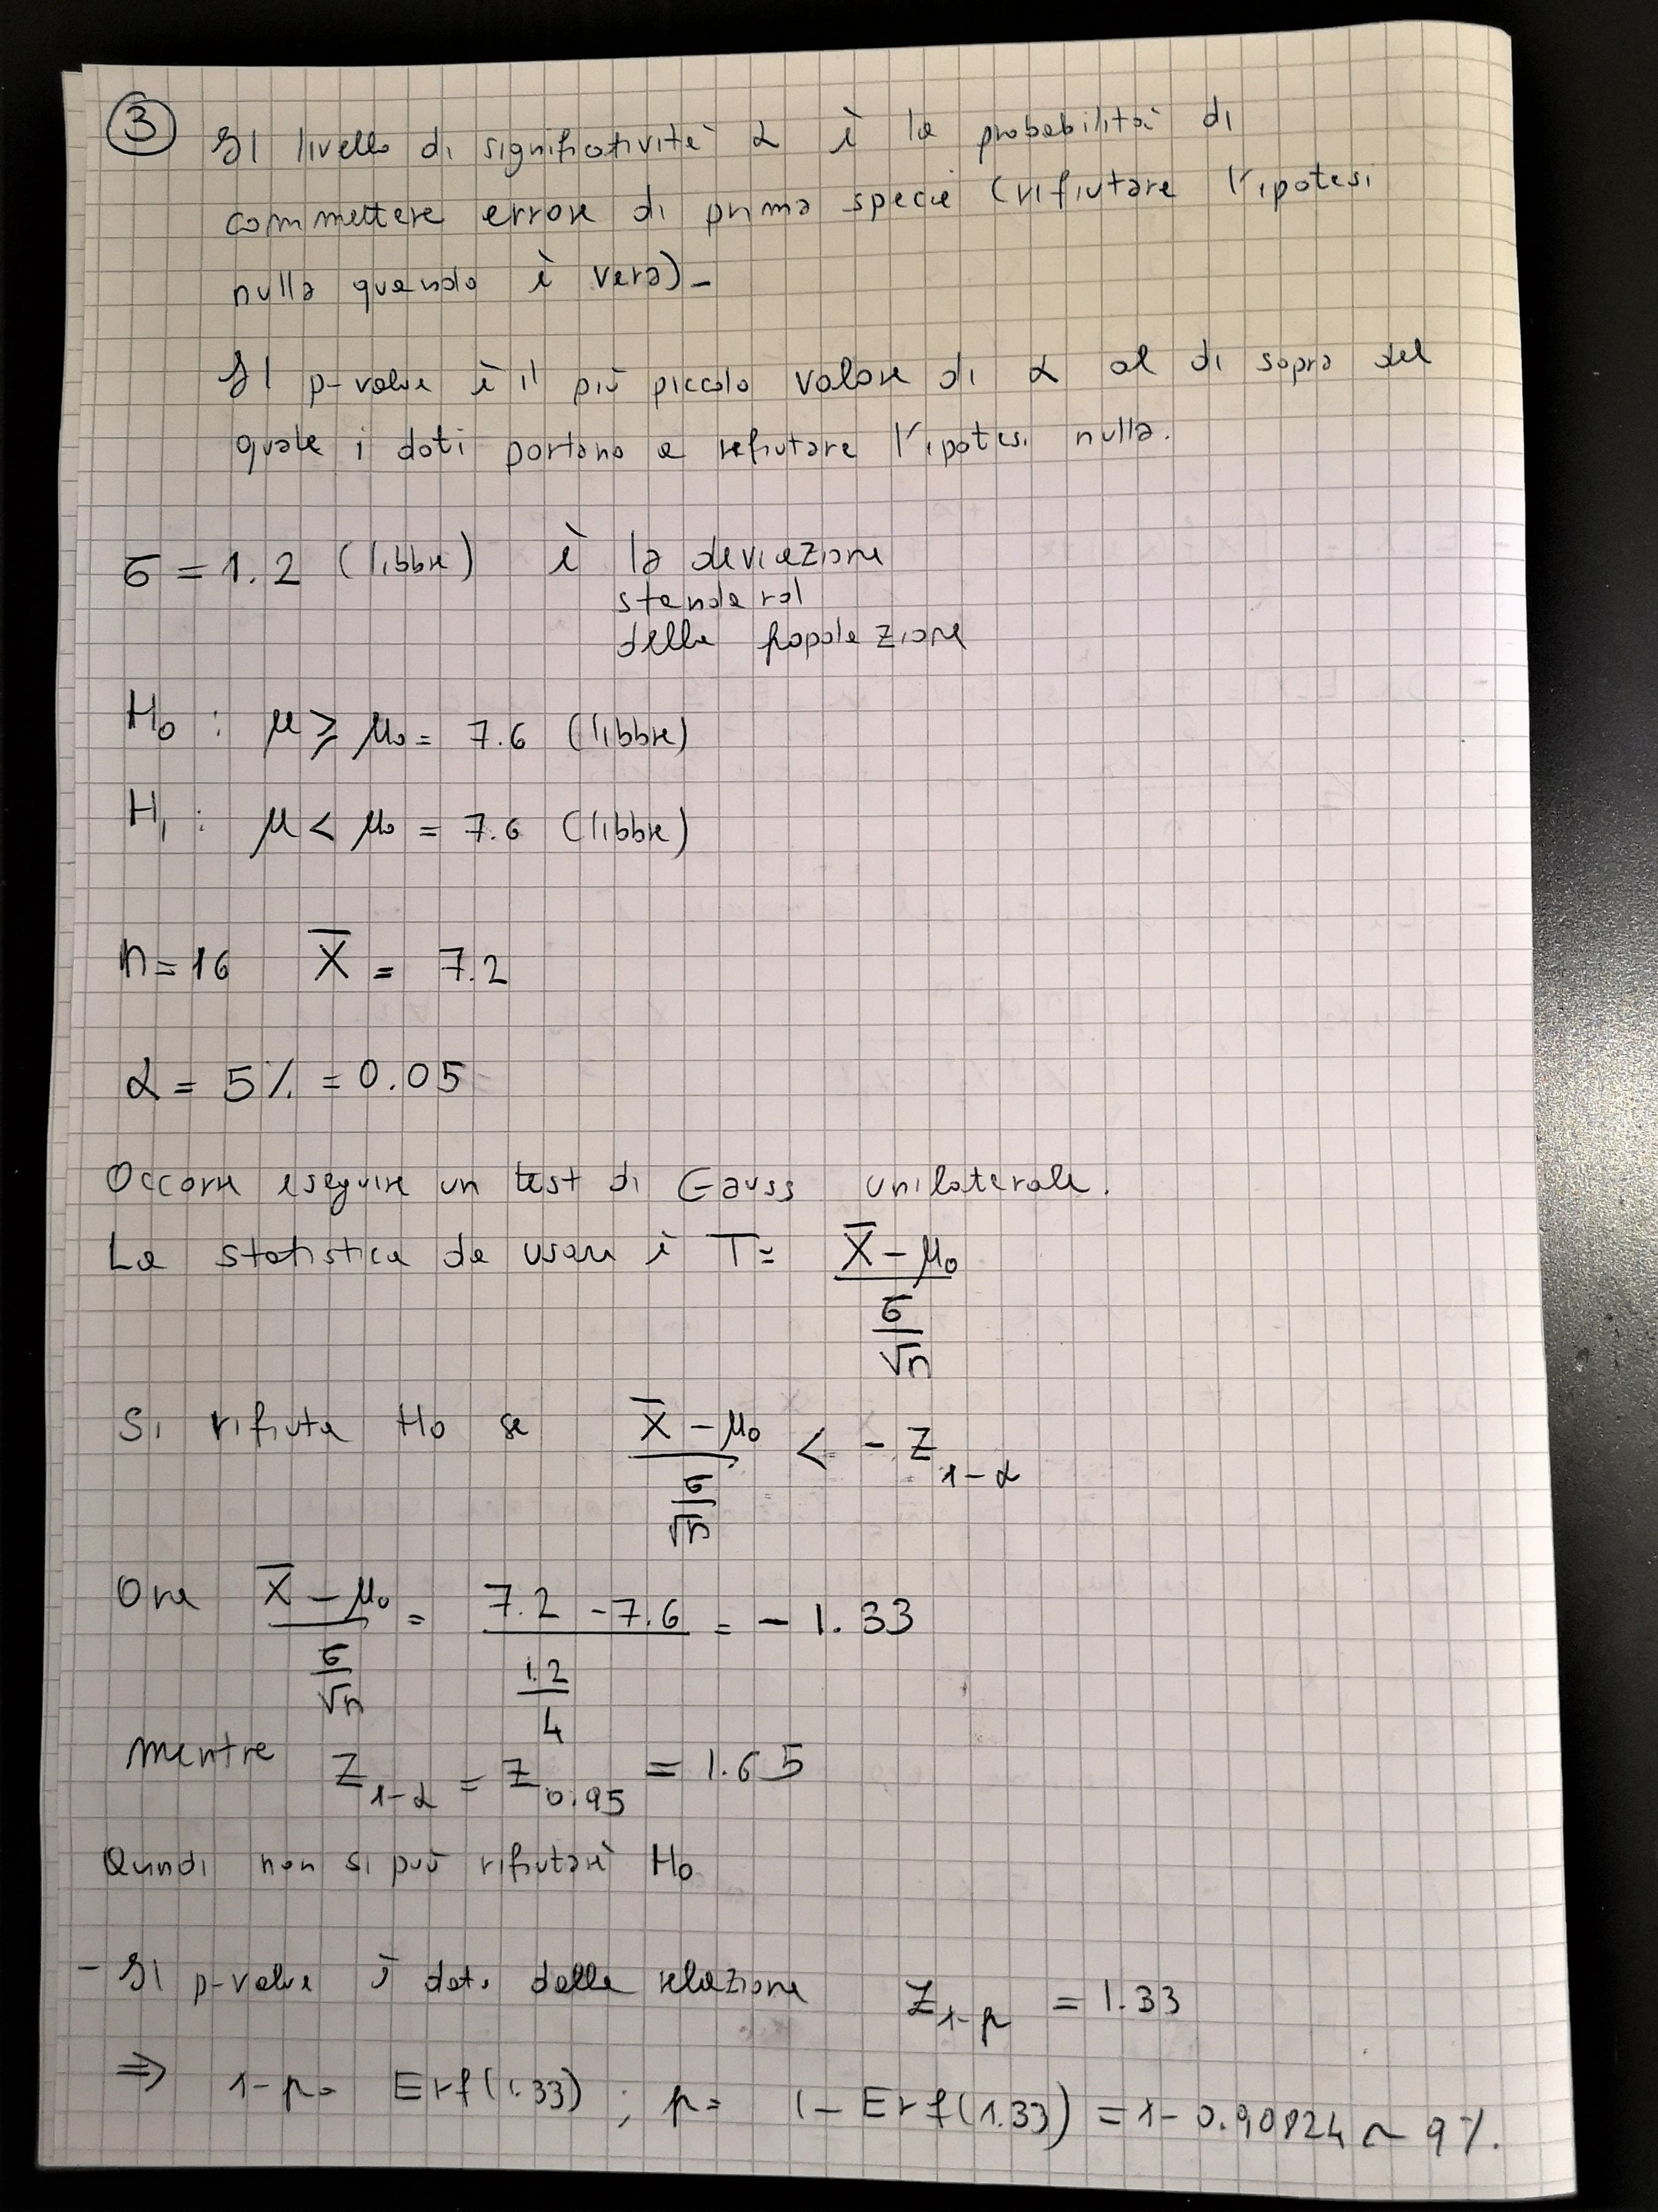 3 Il livello di significatività α è la probabilità di
commettere errore di prima specie (rifiutare l'ipotesi
nulla quando è vera)-
Il p-value è il più piccolo valore di α al di sopra del
quale i dati portano a refiutare l'ipotesi nulla.
σ = 1.2 (libbre) è la deviazione
standard
della popolazione
H₀ : μ ≥ μ₀ = 7.6 (libbre)
H₁ : μ < μ₀ = 7.6 (libbre)
n = 16 X̅ = 7.2
α = 5% = 0.05
Occorre eseguire un test di Gauss unilaterale.
La statistica da usare è T = (X̅ - μ₀) / (σ/√n)
Si rifiuta H₀ se (X̅ - μ₀) / (σ/√n) < - Z₁₋α
Ora (X̅ - μ₀) / (σ/√n) = (7.2 - 7.6) / (1.2/4) = - 1.33
mentre Z₁₋α = Z₀.₉₅ = 1.65
Quindi non si può rifiutare H₀
- Il p-value è dato dalla relazione Z₁₋p = 1.33
⇒ 1-p = Erf(1.33) ; p = 1 - Erf(1.33) = 1 - 0.90824 ~ 9%.